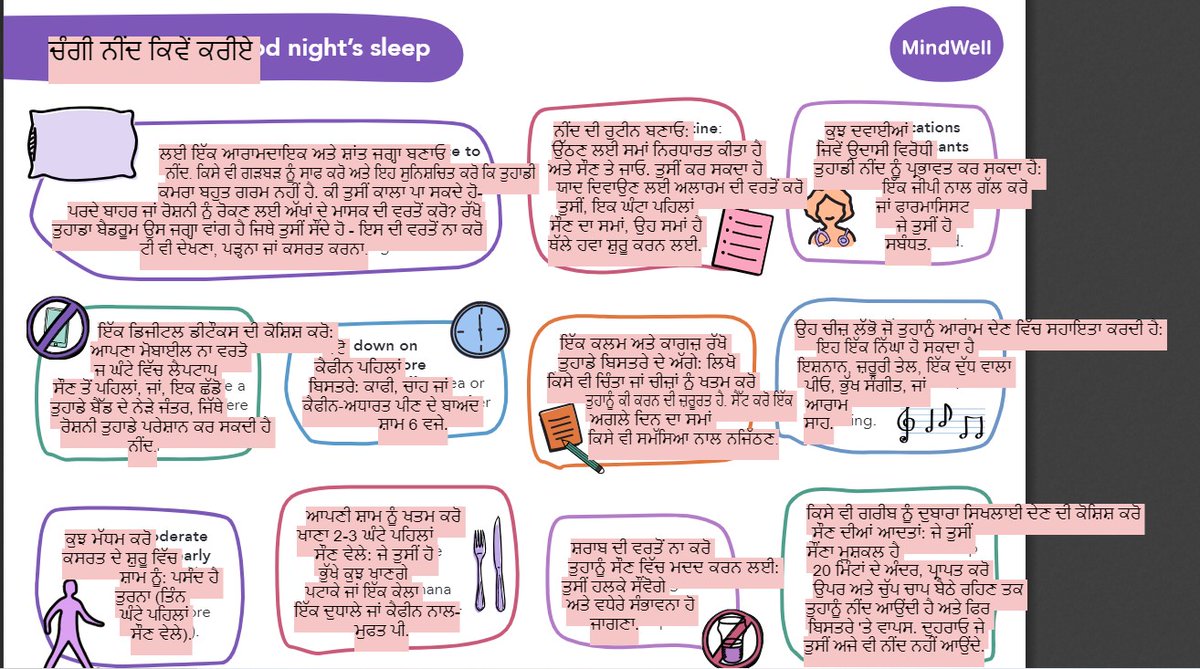 ਚੰਗੀ ਨੀਂਦ ਕਿਵੇਂ ਕਰੀਏ od night's sleep
MindWell
ਲਈ ਇੱਕ ਆਰਾਮਦਾਇਕ ਅਤੇ ਸ਼ਾਂਤ ਜਗ੍ਹਾ ਬਣਾਓ e to
ਨੀਂਦ. ਕਿਸੇ ਵੀ ਗੜਬੜ ਨੂੰ ਸਾਫ ਕਰੋ ਅਤੇ ਇਹ ਸੁਨਿਸ਼ਚਿਤ ਕਰੋ ਕਿ ਤੁਹਾਡੀ
ਕਮਰਾ ਬਹੁਤ ਗਰਮ ਨਹੀਂ ਹੈ. ਕੀ ਤੁਸੀਂ ਕਾਲਾ ਪਾ ਸਕਦੇ ਹੋ-
ਪਰਦੇ ਬਾਹਰ ਜਾਂ ਰੋਸ਼ਨੀ ਨੂੰ ਰੋਕਣ ਲਈ ਅੱਖਾਂ ਦੇ ਮਾਸਕ ਦੀ ਵਰਤੋਂ ਕਰੋ? ਰੱਖੋ
ਤੁਹਾਡਾ ਬੈਡਰੂਮ ਉਸ ਜਗ੍ਹਾ ਵਾਂਗ ਹੈ ਜਿਥੇ ਤੁਸੀਂ ਸੌਂਦੇ ਹੋ - ਇਸ ਦੀ ਵਰਤੋਂ ਨਾ ਕਰੋ
ਟੀ ਵੀ ਦੇਖਣਾ, ਪੜ੍ਹਨਾ ਜਾਂ ਕਸਰਤ ਕਰਨਾ.
ਨੀਂਦ ਦੀ ਰੁਟੀਨ ਬਣਾਓ: ine:
ਉੱਠਣ ਲਈ ਸਮਾਂ ਨਿਰਧਾਰਤ ਕੀਤਾ ਹੈ
ਅਤੇ ਸੌਣ ਤੇ ਜਾਓ. ਤੁਸੀਂ ਕਰ ਸਕਦਾ ਹੋ
ਯਾਦ ਦਿਵਾਉਣ ਲਈ ਅਲਾਰਮ ਦੀ ਵਰਤੋਂ ਕਰੋ
ਤੁਸੀਂ, ਇਕ ਘੰਟਾ ਪਹਿਲਾਂ
ਸੌਣ ਦਾ ਸਮਾਂ, ਉਹ ਸਮਾਂ ਹੈ
ਥੱਲੇ ਹਵਾ ਸ਼ੁਰੂ ਕਰਨ ਲਈ.
ਕੁਝ ਦਵਾਈਆਂ cations
ਜਿਵੇਂ ਉਦਾਸੀ ਵਿਰੋਧੀ ants
ਤੁਹਾਡੀ ਨੀਂਦ ਨੂੰ ਪ੍ਰਭਾਵਤ ਕਰ ਸਕਦਾ ਹੈ:
ਇੱਕ ਜੀਪੀ ਨਾਲ ਗੱਲ ਕਰੋ
ਜਾਂ ਫਾਰਮਾਸਿਸਟ
ਜੇ ਤੁਸੀਂ ਹੋ
ਸਬੰਧਤ. d.
ਇੱਕ ਡਿਜੀਟਲ ਡੀਟੌਕਸ ਦੀ ਕੋਸ਼ਿਸ਼ ਕਰੋ:
ਆਪਣਾ ਮੋਬਾਈਲ ਨਾ ਵਰਤੋ
ਜ ਘੰਟੇ ਵਿੱਚ ਲੈਪਟਾਪ
ਸੌਣ ਤੋਂ ਪਹਿਲਾਂ, ਜਾਂ, ਇਕ ਛੱਡੋ e a
ਤੁਹਾਡੇ ਬੈੱਡ ਦੇ ਨੇੜੇ ਜੰਤਰ, ਜਿੱਥੇ ere
ਰੋਸ਼ਨੀ ਤੁਹਾਡੇ ਪਰੇਸ਼ਾਨ ਕਰ ਸਕਦੀ ਹੈ
ਨੀਂਦ.
down on
ਕੈਫੀਨ ਪਹਿਲਾਂ ore
ਬਿਸਤਰੇ: ਕਾਫੀ, ਚਾਹ ਜਾਂ ea or
ਕੈਫੀਨ-ਅਧਾਰਤ ਪੀਣ ਦੇ ਬਾਅਦ er
ਸ਼ਾਮ 6 ਵਜੇ.
ਇੱਕ ਕਲਮ ਅਤੇ ਕਾਗਜ਼ ਰੱਖੋ
ਤੁਹਾਡੇ ਬਿਸਤਰੇ ਦੇ ਅੱਗੇ: ਲਿਖੋ
ਕਿਸੇ ਵੀ ਚਿੰਤਾ ਜਾਂ ਚੀਜ਼ਾਂ ਨੂੰ ਖਤਮ ਕਰੋ
ਤੁਹਾਨੂੰ ਕੀ ਕਰਨ ਦੀ ਜ਼ਰੂਰਤ ਹੈ. ਸੈੱਟ ਕਰੋ ਇੱਕ
ਅਗਲੇ ਦਿਨ ਦਾ ਸਮਾਂ
ਕਿਸੇ ਵੀ ਸਮੱਸਿਆ ਨਾਲ ਨਜਿੱਠਣ.
ਉਹ ਚੀਜ਼ ਲੱਭੋ ਜੋ ਤੁਹਾਨੂੰ ਆਰਾਮ ਦੇਣ ਵਿੱਚ ਸਹਾਇਤਾ ਕਰਦੀ ਹੈ:
ਇਹ ਇੱਕ ਨਿੱਘਾ ਹੋ ਸਕਦਾ ਹੈ
ਇਸ਼ਨਾਨ, ਜ਼ਰੂਰੀ ਤੇਲ, ਇੱਕ ਦੁੱਧ ਵਾਲਾ
ਪੀਓ, ਭੁੱਖ ਸੰਗੀਤ, ਜਾਂ
ਆਰਾਮ
ਸਾਹ. ing.
ਕੁਝ ਮੱਧਮ ਕਰੋ oderate
ਕਸਰਤ ਦੇ ਸ਼ੁਰੂ ਵਿੱਚ arly
ਸ਼ਾਮ ਨੂੰ: ਪਸੰਦ ਹੈ
ਤੁਰਨਾ (ਤਿੰਨ
ਘੰਟੇ ਪਹਿਲਾਂ ore
ਸੌਣ ਵੇਲੇ). ).
ਆਪਣੀ ਸ਼ਾਮ ਨੂੰ ਖਤਮ ਕਰੋ
ਖਾਣਾ 2-3 ਘੰਟੇ ਪਹਿਲਾਂ
ਸੌਣ ਵੇਲੇ: ਜੇ ਤੁਸੀਂ ਹੋ
ਭੁੱਖੇ ਕੁਝ ਖਾਣਗੇ e
ਪਟਾਕੇ ਜਾਂ ਇੱਕ ਕੇਲਾ nana
ਇੱਕ ਦੁਧਾਲੇ ਜਾਂ ਕੈਫੀਨ ਨਾਲ-
ਮੁਫਤ ਪੀ.
ਸ਼ਰਾਬ ਦੀ ਵਰਤੋਂ ਨਾ ਕਰੋ
ਤੁਹਾਨੂੰ ਸੌਣ ਵਿੱਚ ਮਦਦ ਕਰਨ ਲਈ:
ਤੁਸੀਂ ਹਲਕੇ ਸੌਂਵੋਗੇ
ਅਤੇ ਵਧੇਰੇ ਸੰਭਾਵਨਾ ਹੋ
ਜਾਗਣਾ.
ਕਿਸੇ ਵੀ ਗਰੀਬ ਨੂੰ ਦੁਬਾਰਾ ਸਿਖਲਾਈ ਦੇਣ ਦੀ ਕੋਸ਼ਿਸ਼ ਕਰੋ
ਸੌਣ ਦੀਆਂ ਆਦਤਾਂ: ਜੇ ਤੁਸੀਂ
ਸੌਣਾ ਮੁਸ਼ਕਲ ਹੈ
20 ਮਿੰਟਾਂ ਦੇ ਅੰਦਰ, ਪ੍ਰਾਪਤ ਕਰੋ
ਉਪਰ ਅਤੇ ਚੁੱਪ ਚਾਪ ਬੈਠੇ ਰਹਿਣ ਤਕ
ਤੁਹਾਨੂੰ ਨੀਂਦ ਆਉਂਦੀ ਹੈ ਅਤੇ ਫਿਰ
ਬਿਸਤਰੇ 'ਤੇ ਵਾਪਸ. ਦੁਹਰਾਓ ਜੇ
ਤੁਸੀਂ ਅਜੇ ਵੀ ਨੀਂਦ ਨਹੀਂ ਆਉਂਦੇ.